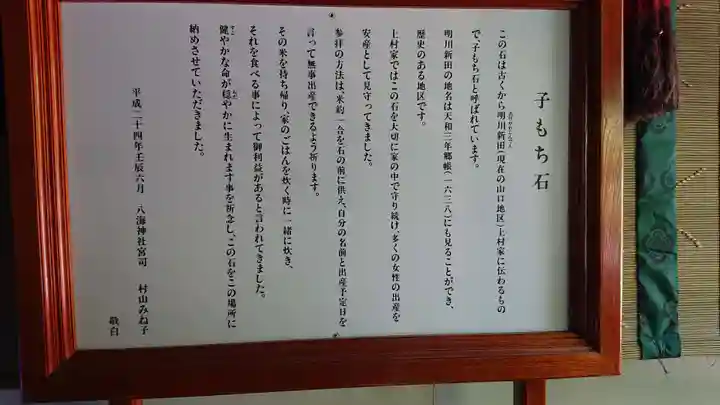 子もち石
この石は古くから明川新田(現在の山口地区)上村家に伝わるもの
で、子もち石と呼ばれています。
明川新田の地名は天和三年郷帳(一六三八)にも見ることができ、
歴史のある地区です。
上村家ではこの石を大切に家の中で守り続け、多くの女性の出産を
安産として見守ってきました。
参拝の方法は、米約一合を石の前に供え、自分の名前と出産予定日を
言って無事出産できるよう祈ります。
その米を持ち帰り、家のごはんを炊く時に一緒に炊き、
それを食べる事によって御利益があると言われてきました。
健やかな命が穏やかに生まれます事を祈念し、この石をこの場所に
納めさせていただきました。
平成二十四年壬辰六月 八海神社宮司 村山みね子
敬白